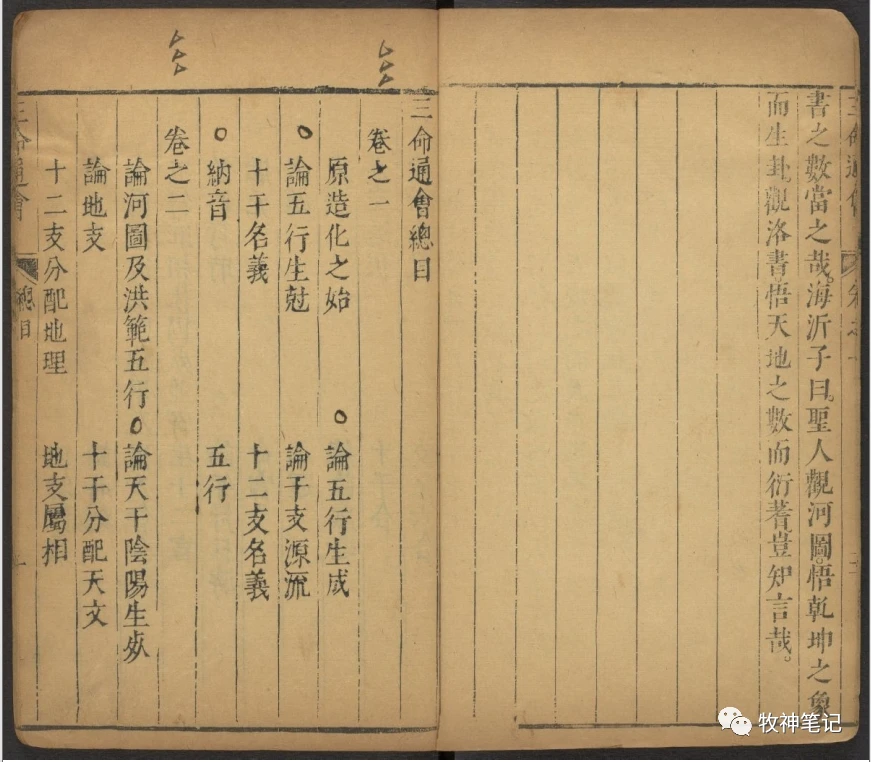 書之數當之哉。海沂子曰。聖人觀河圖。悟乾坤之象
而生卦。觀洛書。悟天地之數而衍蓍。豈知言哉。
三命通會總目
卷之一
原造化之始
論五行生成
論五行生尅
論干支源流
十干名義
十二支名義
納音
五行
卷之二
論河圖及洪範五行
論天干陰陽生𣦸
論地支
十干分配天文
十二支分配地理
地支屬相
三命通會
總目
一
牧神笔记